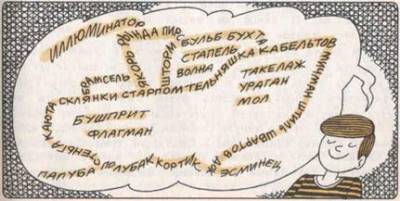 ИЛЛЮМИНАТОР
РЫНДА ПИРС
ЯКОРЬ
ШТОРМ
БУЛЬБ БУХТА
СТАПЕЛЬ
ВОЛНА
БРАМСЕЛЬ
КАЮТА СКЛЯНКИ СТАРПОМ ТЕЛЬНЯШКА КАБЕЛЬТОВ
ТАКЕЛАЖ
УРАГАН
МОЛ
МИЧМАН ШТИЛЬ ШВАРТОВ
БУШПРИТ
ФЛАГМАН
СТЕНЬГА
ПАЛУБА ПОЛУБАК КОРТИК
ЭСМИНЕЦ